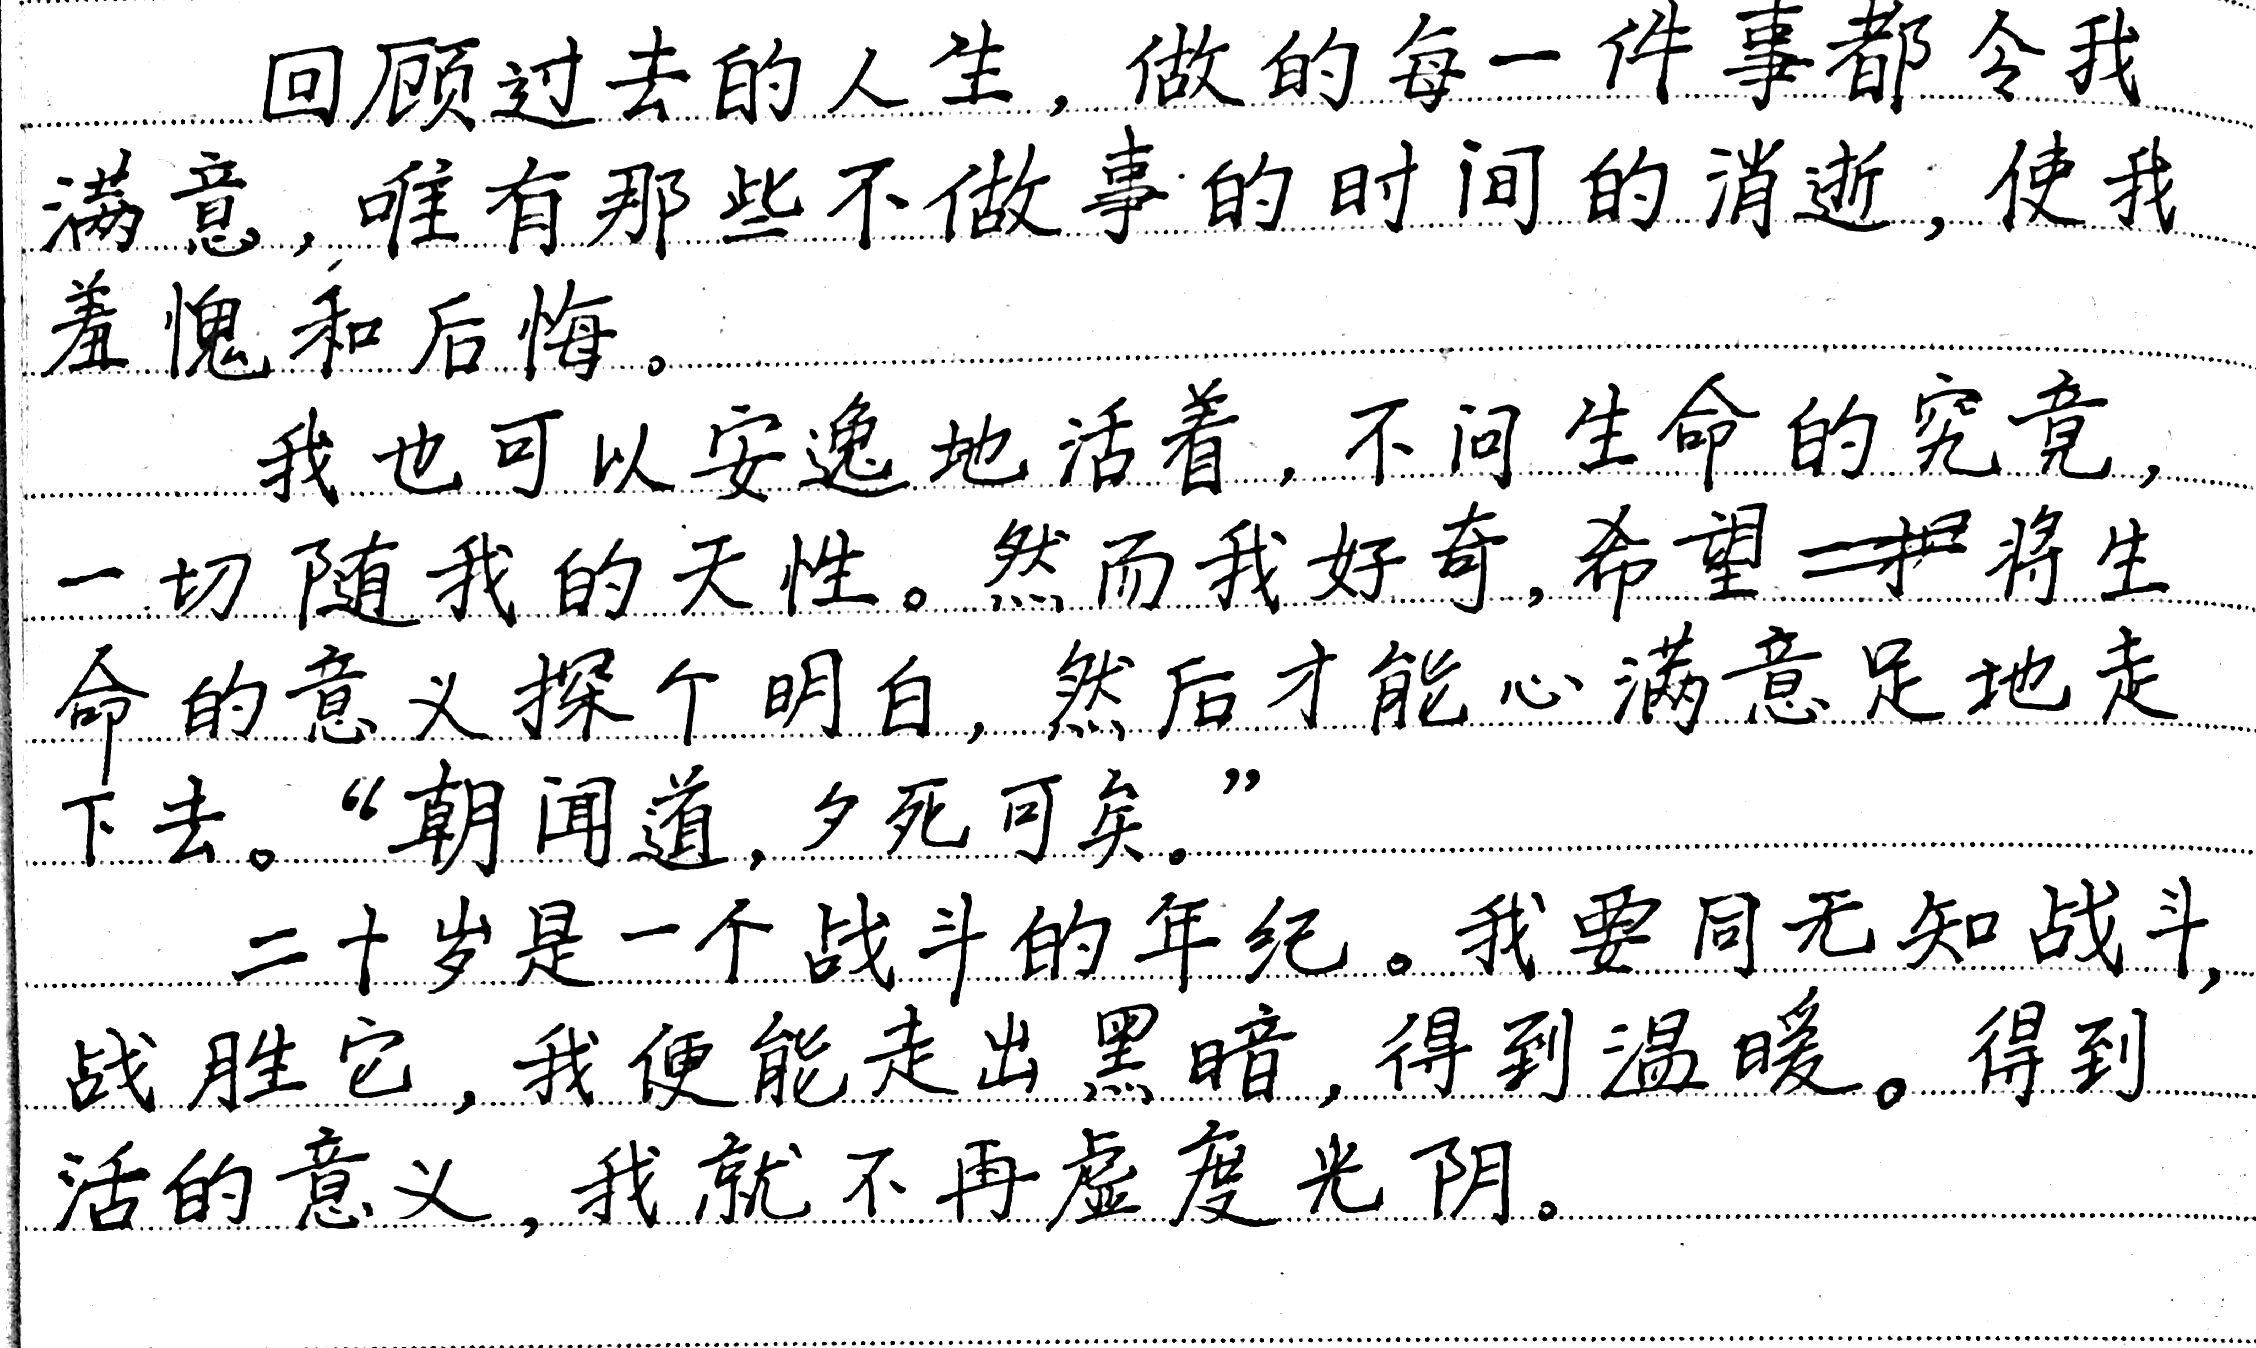 回顾过去的人生，做的每一件事都令我
满意，唯有那些不做事的时间的消逝，使我
羞愧和后悔。
我也可以安逸地活着，不问生命的究竟，
一切随我的天性。然而我好奇，希望将生
命的意义探个明白，然后才能心满意足地走
下去。“朝闻道，夕死可矣。”
二十岁是一个战斗的年纪。我要同无知战斗，
战胜它，我便能走出黑暗，得到温暖。得到
活的意义，我就不再虚度光阴。